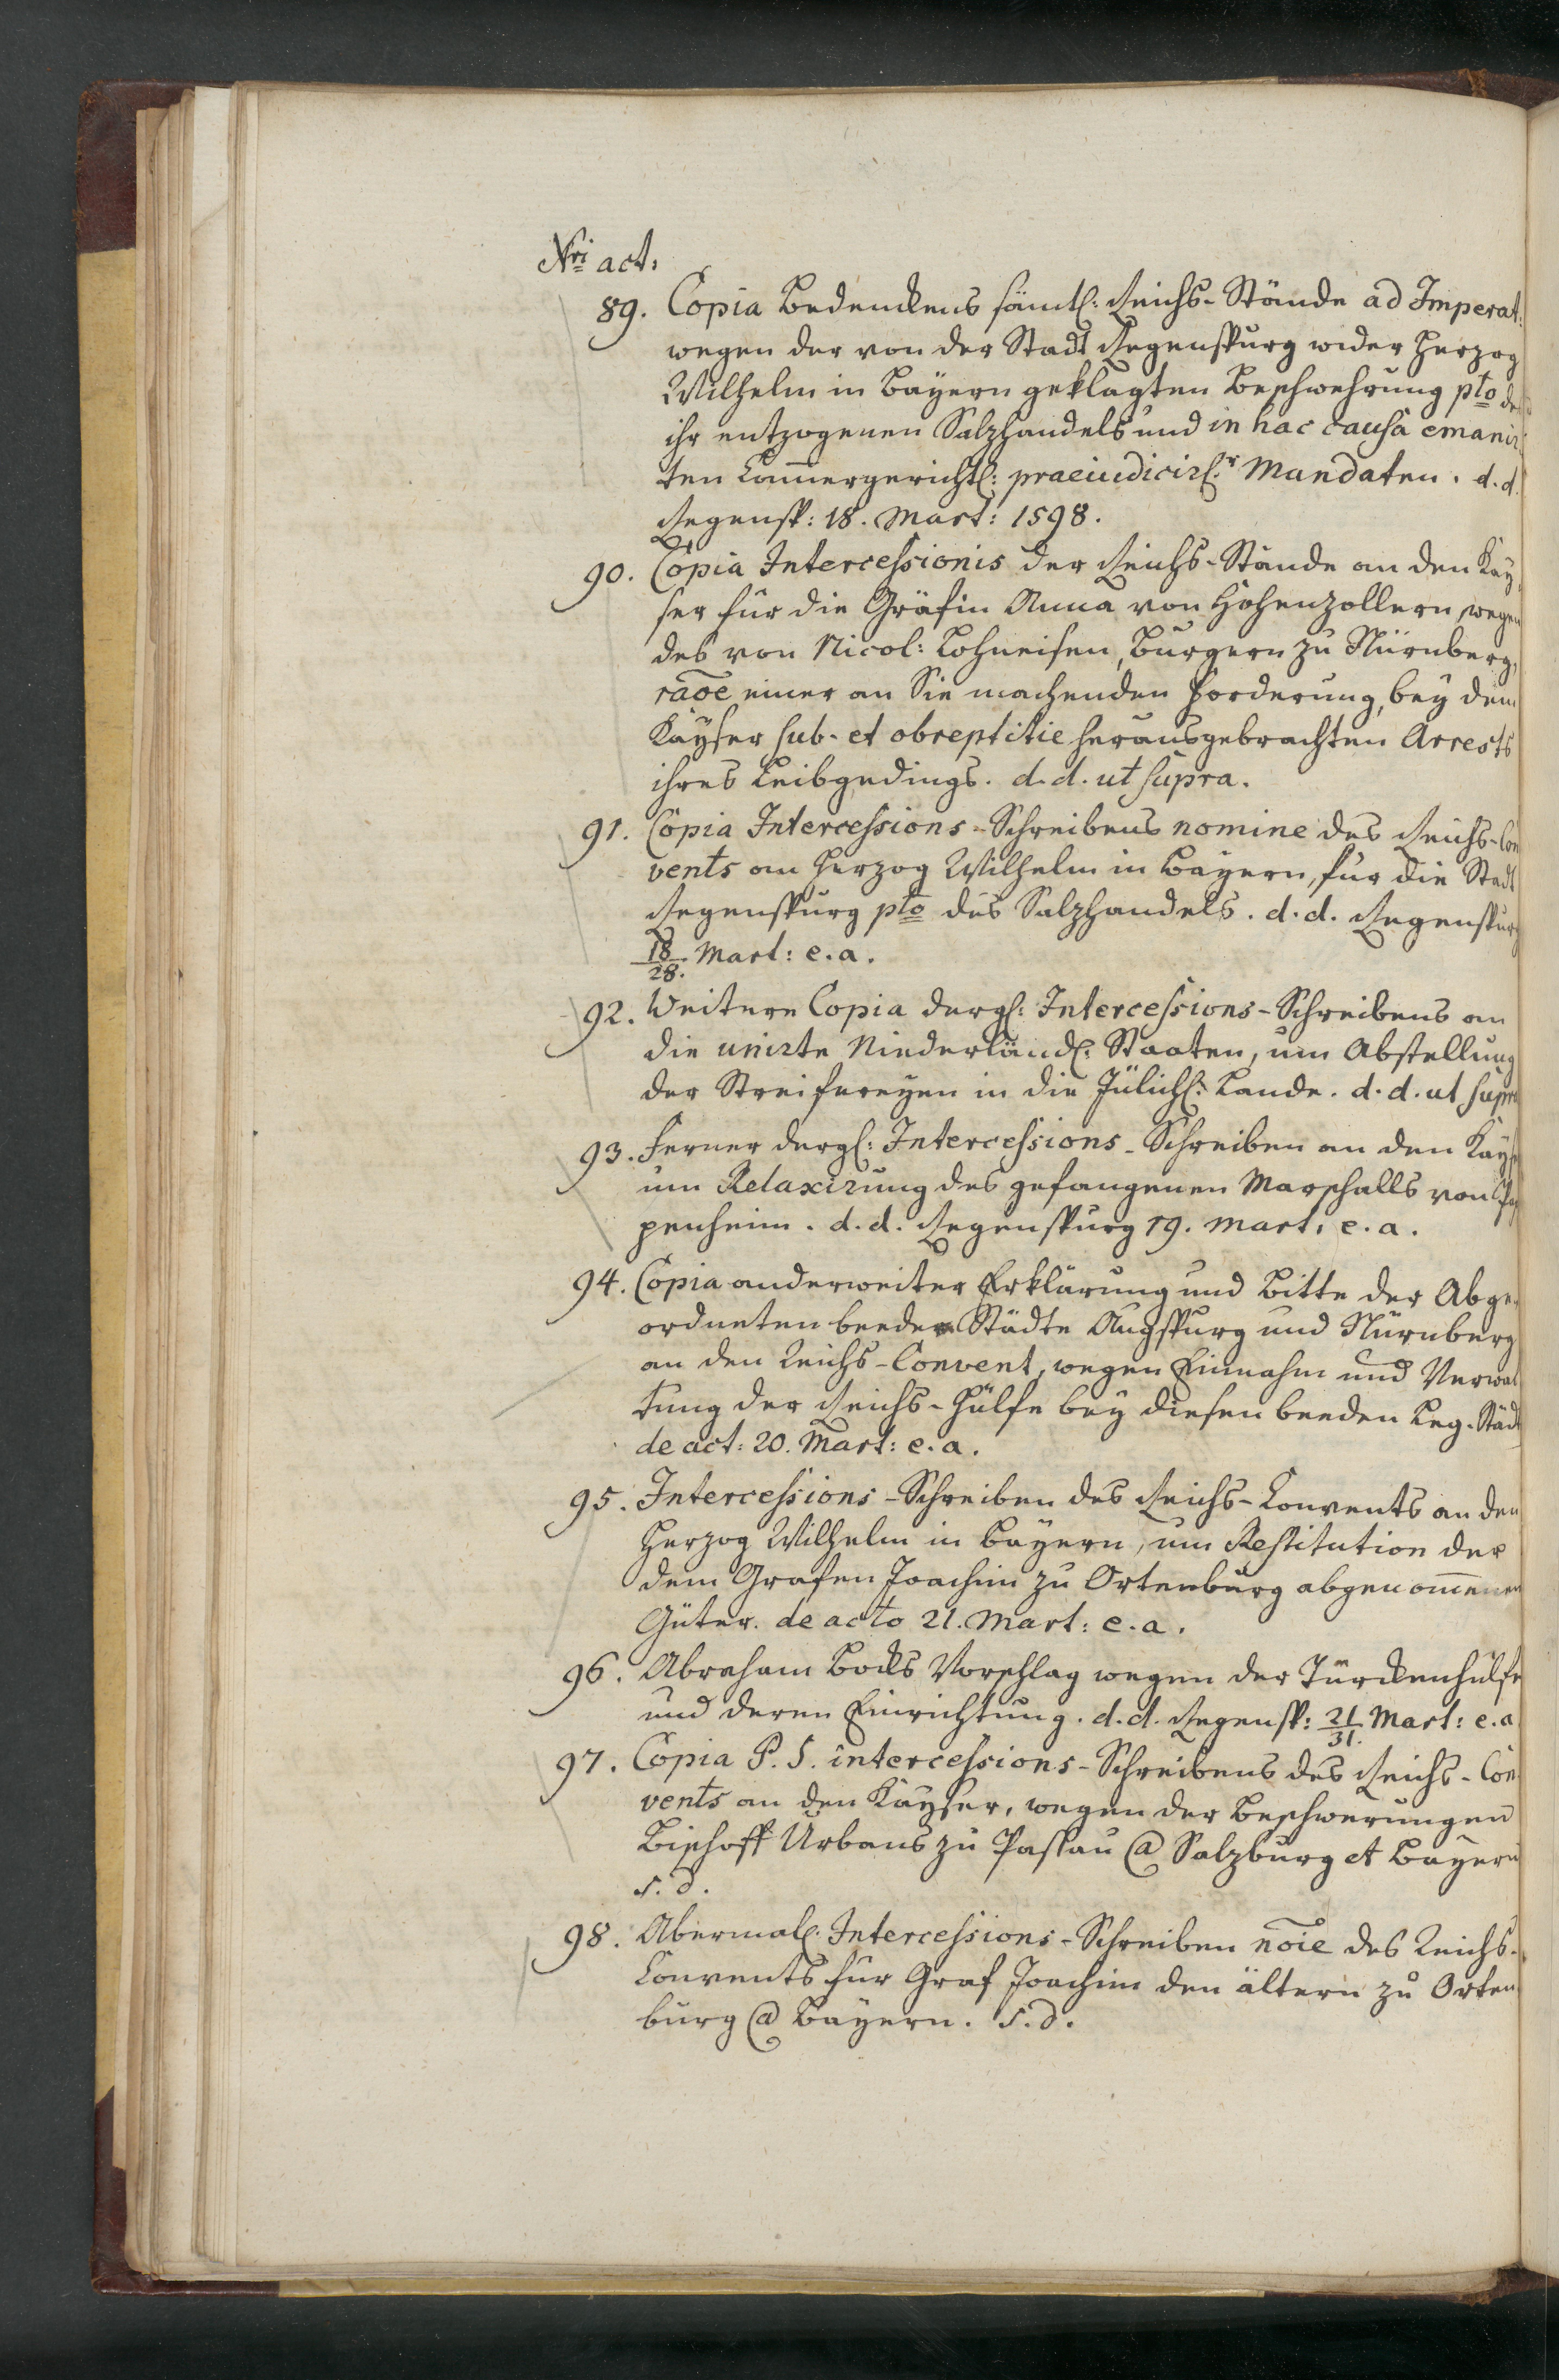 Nri act:
89. Copia Bedenckens sämtl: Reichs-Stände ad Imperat:
wegen der von der Stadt Regenspurg wider Herzog
Wilhelm in Bayern geklagten Beschwehrung pto des
ihr entzogenen Salzhandels und in hac causa emanir
ten Cammergerichtl: praeiudicirl:r Mandaten. d. d.
Regensp: 18. Mart: 1598.
90. Copia Intercessionis der Reichs-Stände an den Kay
ser für die Gräfin Anna von Hohenzollern, wegen
des von Nicol: Lohneisen, Burgern zu Nürnberg,
raõe einer an Sie machenden Forderung, bey dem
Kayser sub- et obreptitie herausgebrachten Arrests
ihres Leibgedings. d. d. ut supra.
91. Copia Intercessions-Schreibens nomine des Reichs-Con
vents an Herzog Wilhelm in Bayern, für die Stadt
Regenspurg pto des Salzhandels. d. d. Regenspurg
18/28. Mart: e. a.
92. Weitere Copia dergl: Intercessions-Schreibens an
die unirte Niederländl: Staaten, um Abstellung
der Streifereyen in die Jülichl: Lande. d. d. ut supra
93. Ferner dergl: Intercessions-Schreiben an den Kays
um Relaxirung des gefangenen Marschalls von Pap
penheim. d. d. Regenspurg 19. Mart: e. a.
94. Copia anderweiter Erklärung und Bitte der Abge-
ordneten beeder Städte Augspurg und Nürnberg
an den Reichs-Convent, wegen Einnahm und Verwal
tung der Reichs-Hülfe bey diesen beeden Leg-Städt
de act: 20. Mart: e. a.
95. Intercessions-Schreiben des Reichs-Convents an den
Herzog Wilhelm in Bayern, um Restitution der
dem Grafen Joachim zu Ortenburg abgenommenen
Güter. de acto 21. Mart: e. a.
96. Abraham Bocks Vorschlag wegen der Türckenhülfe
und deren Einrichtung. d. d. Regensp: 21/31. Mart: e. a
97. Copia P. S. intercessions-Schreibens des Reichs-Con
vents an den Kayser, wegen der Beschwerungen
Bischoff Urbans zu Passau @ Salzburg et Bayern
s. d.
98. Abermal: Intercessions-Schreiben nõie des Reichs-
Convents für Graf Joachim den ältern zu Orten
burg @ Bayern. s. d.